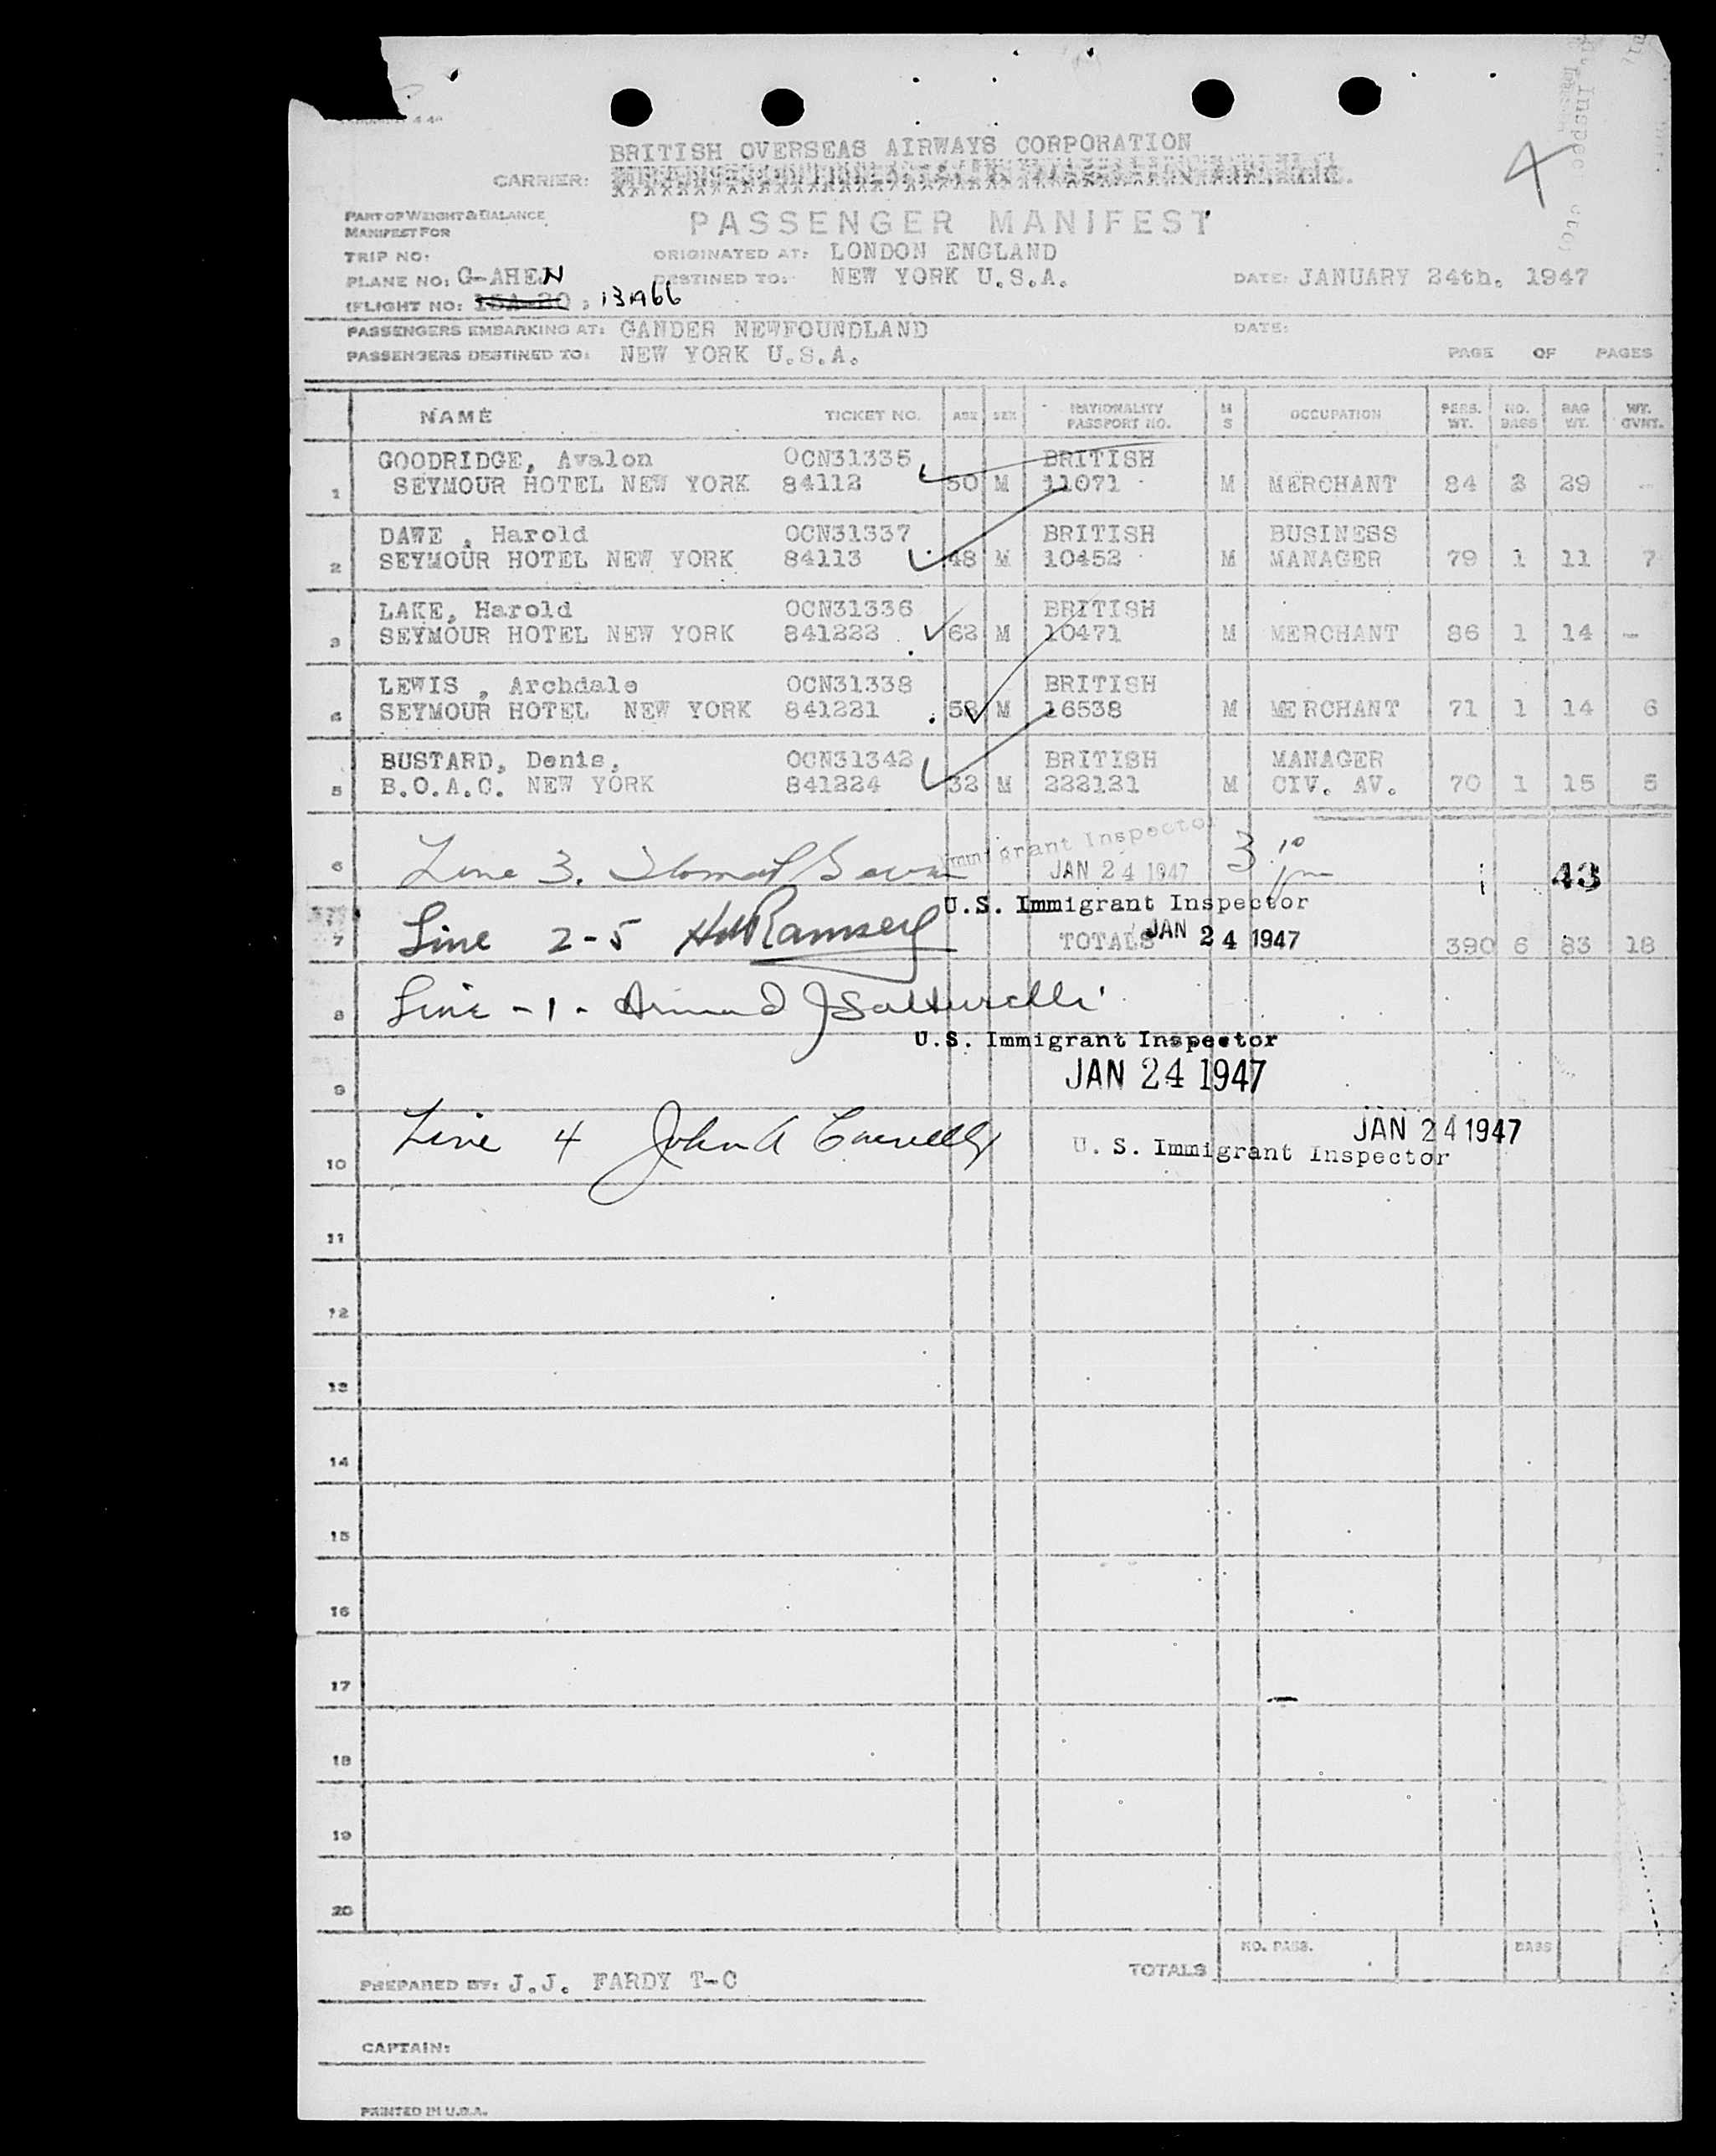 BRITISH OVERSEAS AIRWAYS CORPORATION
CARRIER:
4
PART OF WEIGHT & BALANCE
MANIFEST FOR
PASSENGER MANIFEST
TRIP NO: ORIGINATED AT: LONDON ENGLAND
PLANE NO: G-AHEN DESTINED TO: NEW YORK U.S.A. DATE: JANUARY 24th. 1947
(FLIGHT NO: 13A66
PASSENGERS EMBARKING AT: GANDER NEWFOUNDLAND DATE:
PASSENGERS DESTINED TO: NEW YORK U.S.A. PAGE OF PAGES
NAME TICKET NO. AGE SEX NATIONALITY PASSPORT NO. M S OCCUPATION PERS. WT. NO. BAGS BAG WT. WT. OVHT.
GOODRIDGE, Avalon OCN31335 BRITISH
1 SEYMOUR HOTEL NEW YORK 84112 50 M 11071 M MERCHANT 84 2 29 -
DAWE , Harold OCN31337 BRITISH BUSINESS
2 SEYMOUR HOTEL NEW YORK 84113 48 M 10452 M MANAGER 79 1 11 7
LAKE, Harold OCN31336 BRITISH
3 SEYMOUR HOTEL NEW YORK 841222 62 M 10471 M MERCHANT 86 1 14 -
LEWIS , Archdale OCN31338 BRITISH
4 SEYMOUR HOTEL NEW YORK 841221 58 M 16538 M MERCHANT 71 1 14 6
BUSTARD, Denis, OCN31342 BRITISH MANAGER
5 B.O.A.C. NEW YORK 841224 32 M 222121 M CIV. AV. 70 1 15 5
Immigrant Inspector
6 Line 3. JAN 24 1947 3:10 pm 43
U.S. Immigrant Inspector
7 Line 2-5 Ramsey TOTALS JAN 24 1947 390 6 83 18
8 Line - 1 -
U.S. Immigrant Inspector
9 JAN 24 1947
Line 4 John A JAN 24 1947
10 U. S. Immigrant Inspector
11
12
13
14
15
16
17
18
19
20
NO. PASS. BAGS
TOTALS
PREPARED BY: J.J. FARDY T-C
CAPTAIN:
PRINTED IN U.S.A.